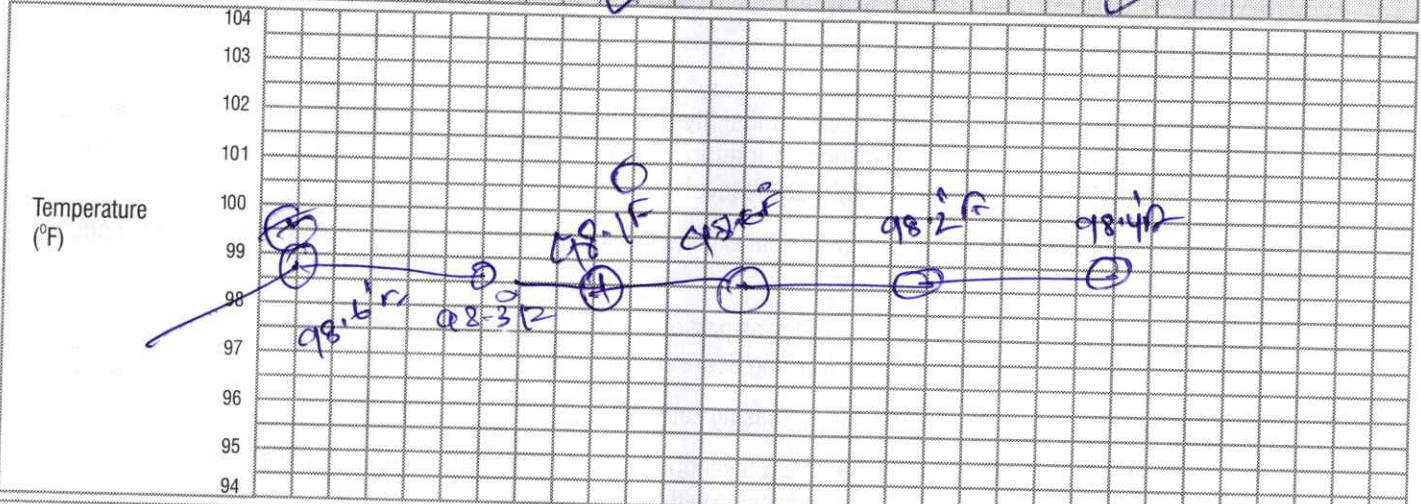 104
103
102
101
100
99
98
97
96
95
94
Temperature
(⁰F)
98.6°F
98.3°F
98.1°F
98.2°F
98.4°F